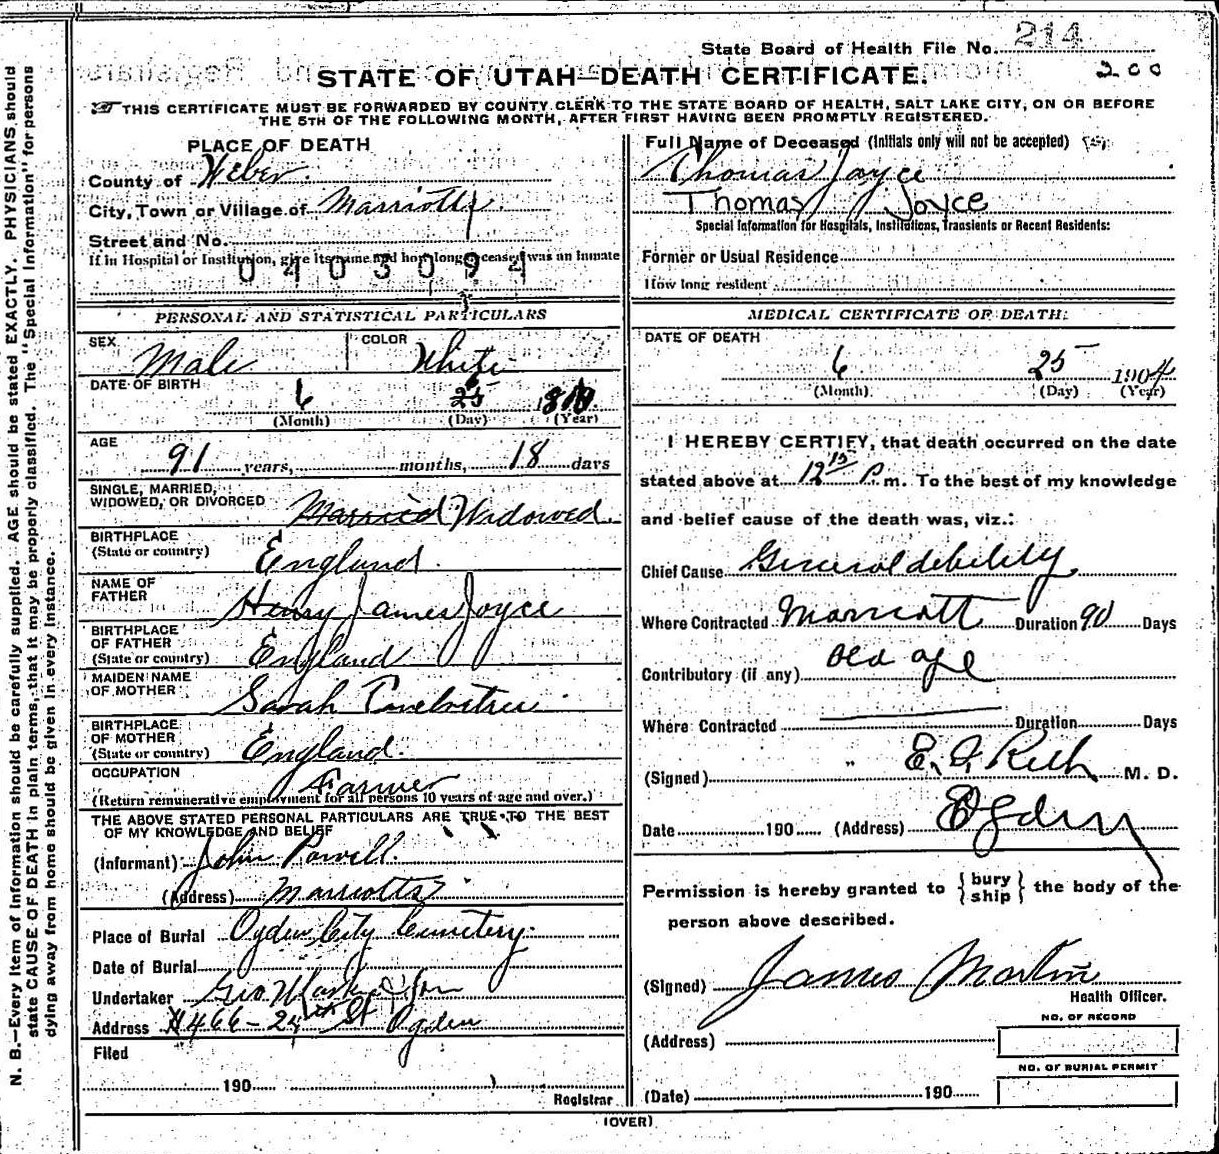 State Board of Health File No. 214
200
STATE OF UTAH—DEATH CERTIFICATE.
THIS CERTIFICATE MUST BE FORWARDED BY COUNTY CLERK TO THE STATE BOARD OF HEALTH, SALT LAKE CITY, ON OR BEFORE
THE 5TH OF THE FOLLOWING MONTH, AFTER FIRST HAVING BEEN PROMPTLY REGISTERED.
PLACE OF DEATH
County of Weber.
City, Town or Village of Marriotts
Street and No.
If in Hospital or Institution, give its name and how long deceased was an inmate
0403094
PERSONAL AND STATISTICAL PARTICULARS
SEX Male COLOR White
DATE OF BIRTH 6 25
(Month) (Day) (Year)
AGE 91 years, months, 18 days
SINGLE, MARRIED,
WIDOWED, OR DIVORCED Married Widowed.
BIRTHPLACE
(State or country) England.
NAME OF
FATHER Henry James Joyce
BIRTHPLACE
OF FATHER
(State or country) England
MAIDEN NAME
OF MOTHER Sarah
BIRTHPLACE
OF MOTHER
(State or country) England.
OCCUPATION Farmer
(Return remunerative employment for all persons 10 years of age and over.)
THE ABOVE STATED PERSONAL PARTICULARS ARE TRUE TO THE BEST
OF MY KNOWLEDGE AND BELIEF
(Informant) John Powell.
(Address) Marriotts
Place of Burial Ogden City Cemetery.
Date of Burial
Undertaker Geo & Son
Address 466-24th St Ogden
Filed
190
Registrar
Full Name of Deceased (Initials only will not be accepted)
Thomas Joyce
Thomas Joyce
Special Information for Hospitals, Institutions, Transients or Recent Residents:
Former or Usual Residence
How long resident
MEDICAL CERTIFICATE OF DEATH.
DATE OF DEATH
6 25 1904
(Month) (Day) (Year)
I HEREBY CERTIFY, that death occurred on the date
stated above at 12 15 P. m. To the best of my knowledge
and belief cause of the death was, viz.:
Chief Cause General debility
Where Contracted Marriott Duration 90 Days
Contributory (if any) old age
Where Contracted Duration Days
(Signed) E. I. Rich M. D.
Date 190 (Address) Ogden
Permission is hereby granted to { bury ship } the body of the
person above described.
(Signed) James Martin
Health Officer.
NO. OF RECORD
(Address)
NO. OF BURIAL PERMIT
(Date) 190
(OVER)
N. B.—Every item of information should be carefully supplied. AGE should be stated EXACTLY. PHYSICIANS should
state CAUSE OF DEATH in plain terms, that it may be properly classified. The "Special Information" for persons
dying away from home should be given in every instance.